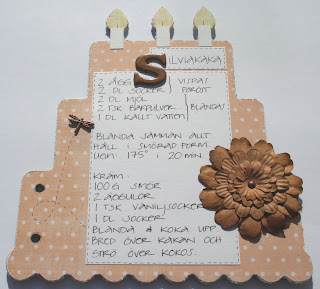 SILVIAKAKA
2 ÄGG } VISPAS
2 DL SOCKER } FÖRST
2 DL MJÖL
2 TSK BAKPULVER } BLANDAS
1 DL KALLT VATTEN
BLANDA SAMMAN ALLT.
HÄLL I SMÖRAD FORM.
UGN: 175° I 20 MIN.
KRÄM:
100 G SMÖR
2 ÄGGULOR
1 TSK VANILJSOCKER
1 DL SOCKER
BLANDA & KOKA UPP.
BRED ÖVER KAKAN OCH
STRÖ ÖVER KOKOS.